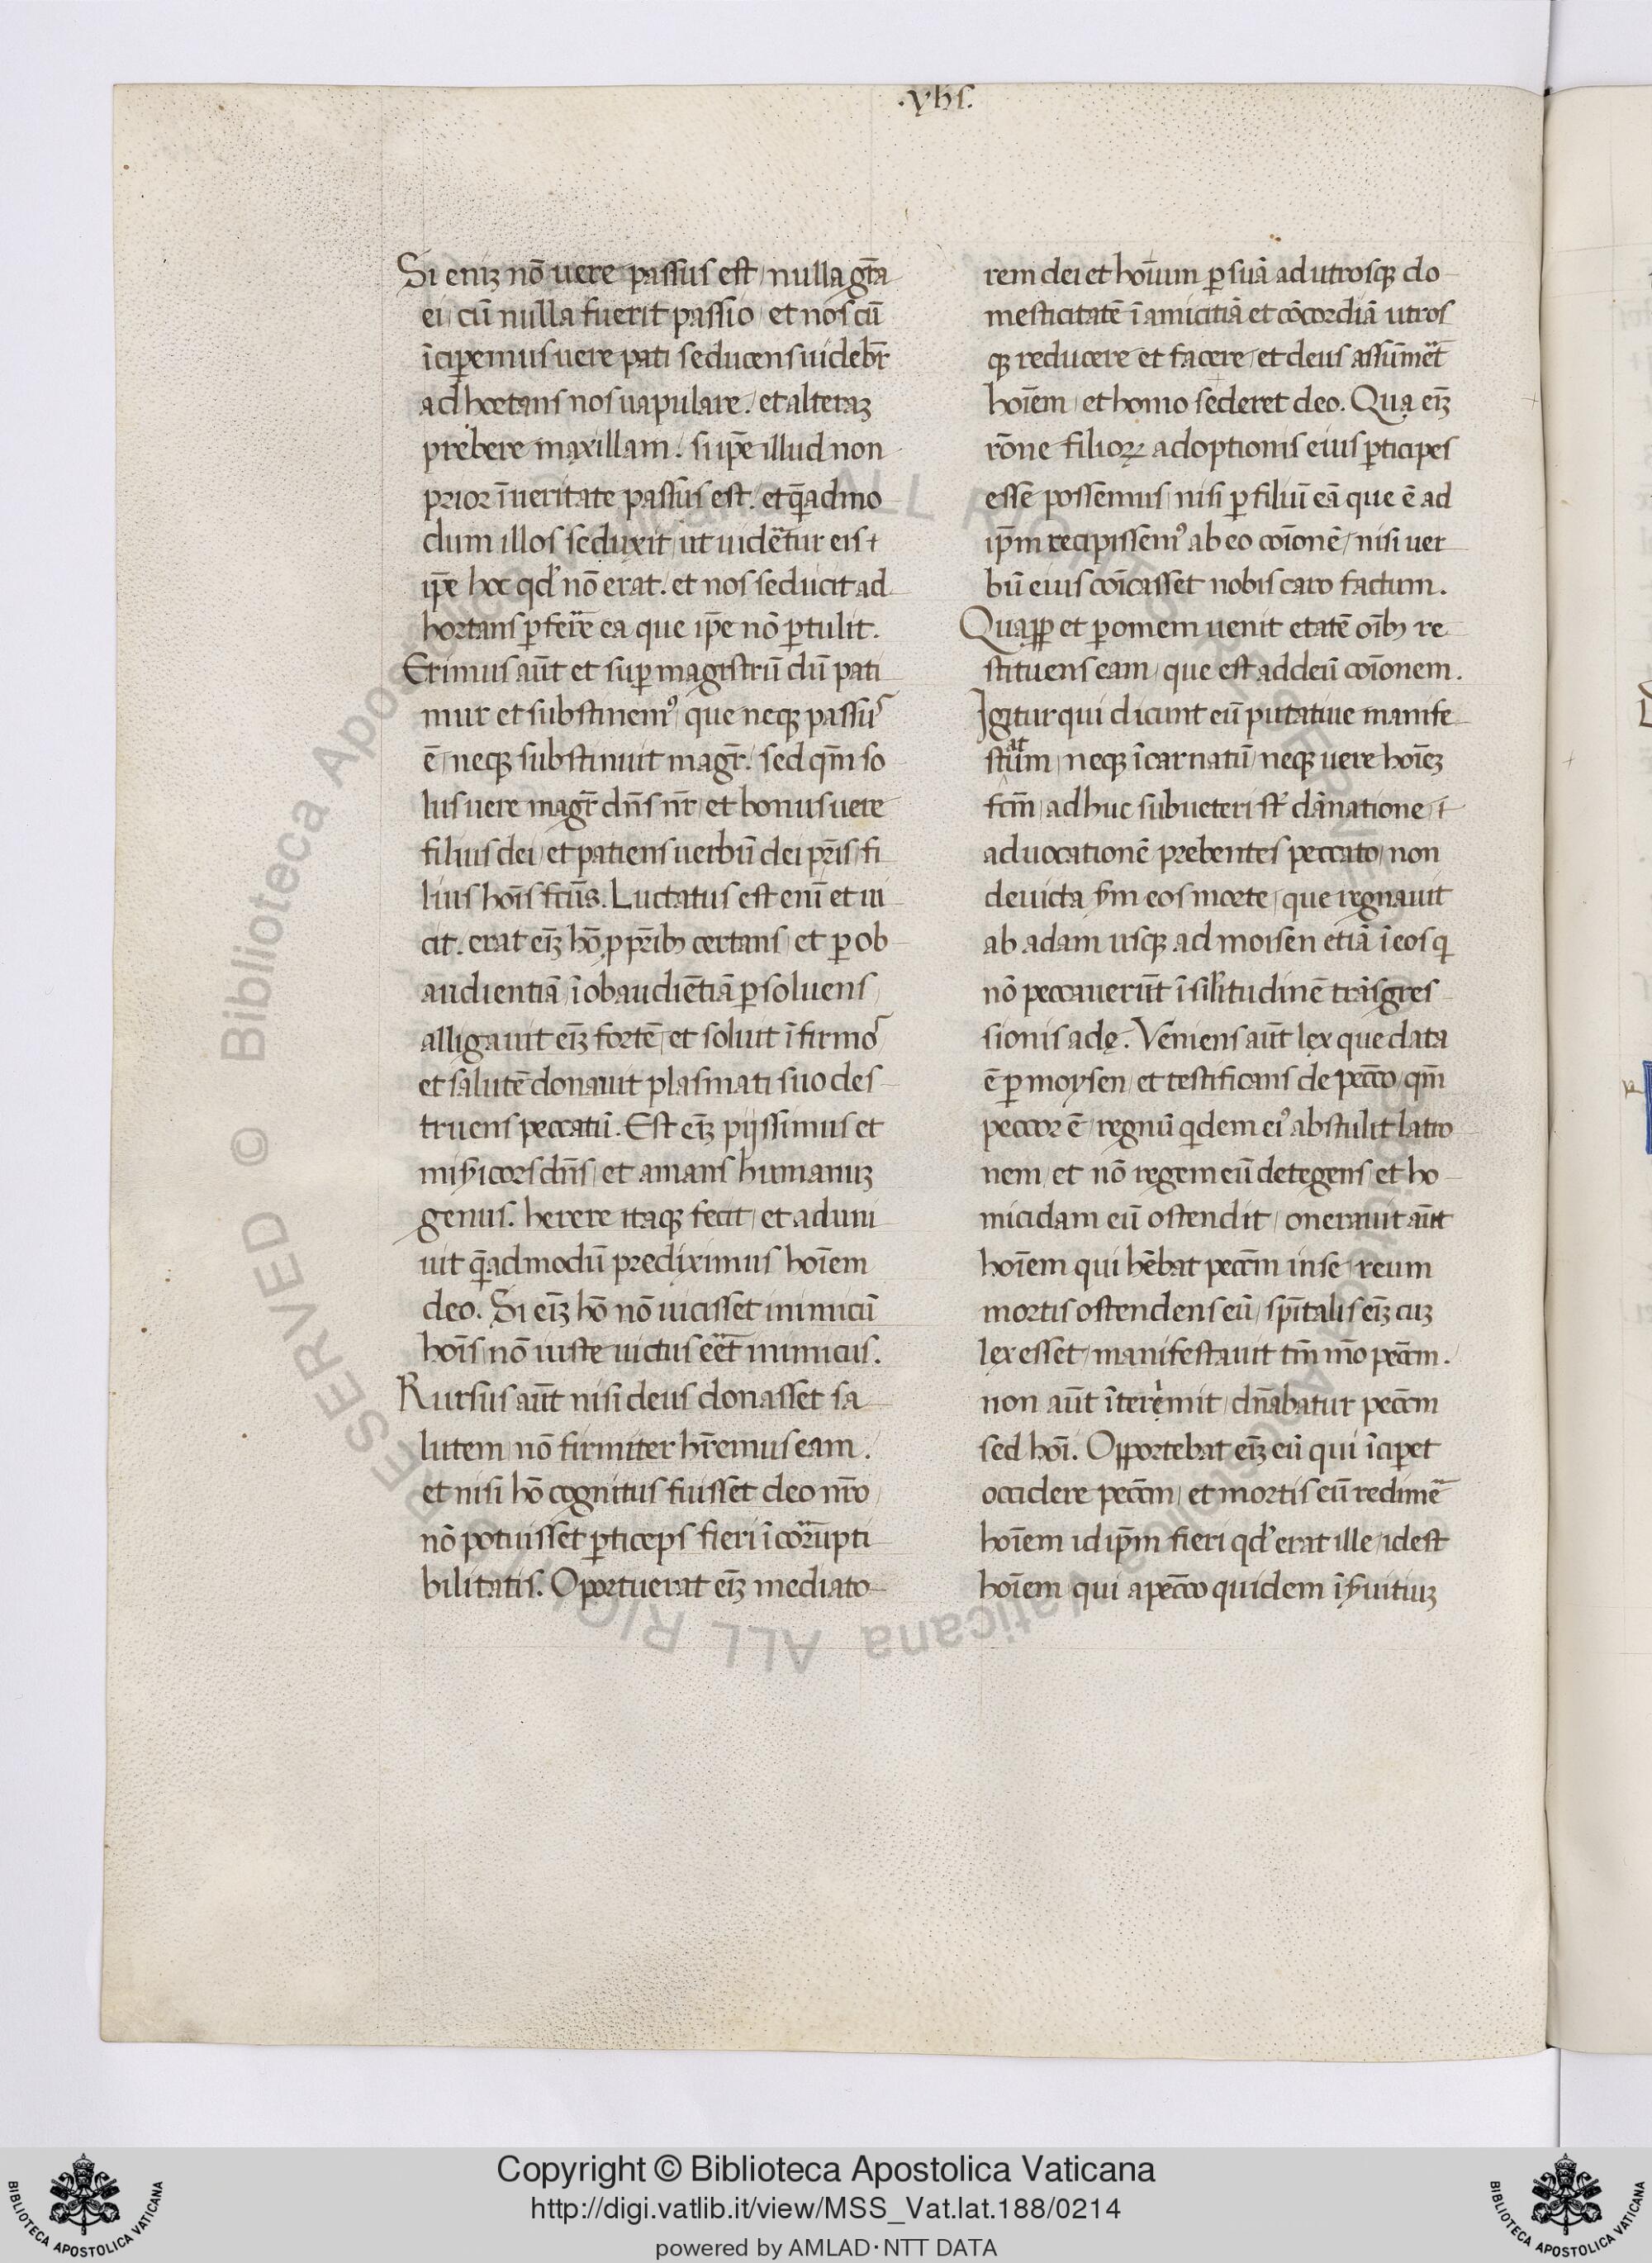 .yhs.
Si eniȝ nō uere passus est / nulla gr̄a
ei / cū nulla fuerit passio / et nos cū
īcip̱emus uere pati seducens uidebr̄
ad hortans nos uapulare . et alteraȝ
prebere maxillam . si ip̄e illud non
prior ī ueritate passus est . et q̄admo
dum illos seduxit / ut uidet᷑ur eis ⁊
ip̄e hoc qđ nō erat . et nos seducit ad
hortans ꝑferr̄e ea que ip̄e nō ꝑtulit .
Erimus aūt et suꝑ magistrū dū pati
mur et substinemꝰ / que neqꝫ passu᷒
ē / neqꝫ substinuit magr̄ . sed qm̄ so
lus uere magr̄ dn̄s nr̄ / et bonus uere
filius dei / et patiens uerbū dei pr̄is / fi
lius hoīs fcūs . Luctatus est enī et ui
cit . erat eīȝ hō ꝓ pr̄ibꝫ certans / et ꝑ ob
audientiā / ī obaudiētiā ꝑsoluens /
alligauit eīȝ fortē / et soluit īfirmo᷒
et salutē donauit plasmati suo des
truens peccatū . Est eīȝ pijssimus et
mis̄icors dn̄s / et amans humanuȝ
genus . herere itaqꝫ fecit / et aduni
uit q̄admodū prediximus hoīem
deo . Si eīȝ hō nō uicisset inimicū
hoīs / nō iuste uictus eēt inimicus .
Rursus aūt nisi deus donasset sa
lutem / nō firmiter hr̄emus eam .
et nisi hō cognitus fuisset deo nr̄o /
nō potuisset ꝑticeps fieri ī corrūpti
bilitatis . Oportuerat eīȝ mediato
rem dei et hoīum ꝑ suā ad utrosqꝫ do
mesticitatē ī amicitiā et cōcordiā utros
qꝫ reducere et facere / et deus assūmet᷑
hoīem / et homo sederet deo . Qua eīȝ
rōne filioꝝ adoptionis eius ꝑticipes
esse possemus / nisi ꝑ filiū eā que ē ad
ip̄m recipissemꝰ ab eo coīonē / nisi uer
bū eius coīcasset nobis caro factum .
Quaꝓꝑ et ꝑ omem uenit etatē oībꝫ re
stituens eam / que est ad deū coīonem .
Igitur qui dicunt eū putatiue manife
statum / neqꝫ īcarnatū / neqꝫ uere hoīeȝ
fcm̄ / ad huc sub ueteri st̄ dānatione / ⁊
aduocationē prebentes peccato / non
deuicta s̄m eos morte / que regnauit
ab adam usqꝫ ad moisen etiā ī eos qi
nō peccauerūt ī sil̄itudinē trāsgres
sionis adę . Veniens aūt lex que data
ē ꝑ moysen / et testificans de pecc̄o / qm̄
peccor ē / regnū qidem eiꝰ abstulit latro
nem / et nō regem eū detegens / et ho
micidam eū ostendit / onerauit aūt
hoīem qui hēbat pecc̄m in se / reum
mortis ostendens eū / spīitalis eīȝ cuȝ
lex esset / manifestauit tm̄mō pecc̄m .
non aūt īteremit / dn̄abatur pecc̄m
sed hoī . Opportebat eīȝ eū qui īciꝑet
occidere pecc̄m / et mortis eū redimē᷑
hoīem id ip̄m fieri qđ erat ille / idest
hoīem / qui a pecc̄o quidem ī s̄uitiuȝ
Copyright © Biblioteca Apostolica Vaticana
http://digi.vatlib.it/view/MSS_Vat.lat.188/0214
powered by AMLAD·NTT DATA
BIBLIOTECA APOSTOLICA VATICANA
BIBLIOTECA APOSTOLICA VATICANA
© Biblioteca Apostolica Vaticana ALL RIGHTS RESERVED
© Biblioteca Apostolica Vaticana ALL RIGHTS RESERVED